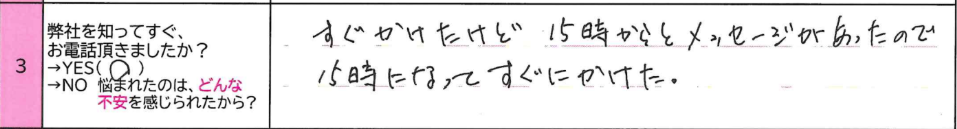 3
弊社を知ってすぐ、
お電話頂きましたか？
→YES(○)
→NO 悩まれたのは、どんな
不安を感じられたから？
すぐかけたけど 15時からとメッセージがあったので
15時になってすぐにかけた。